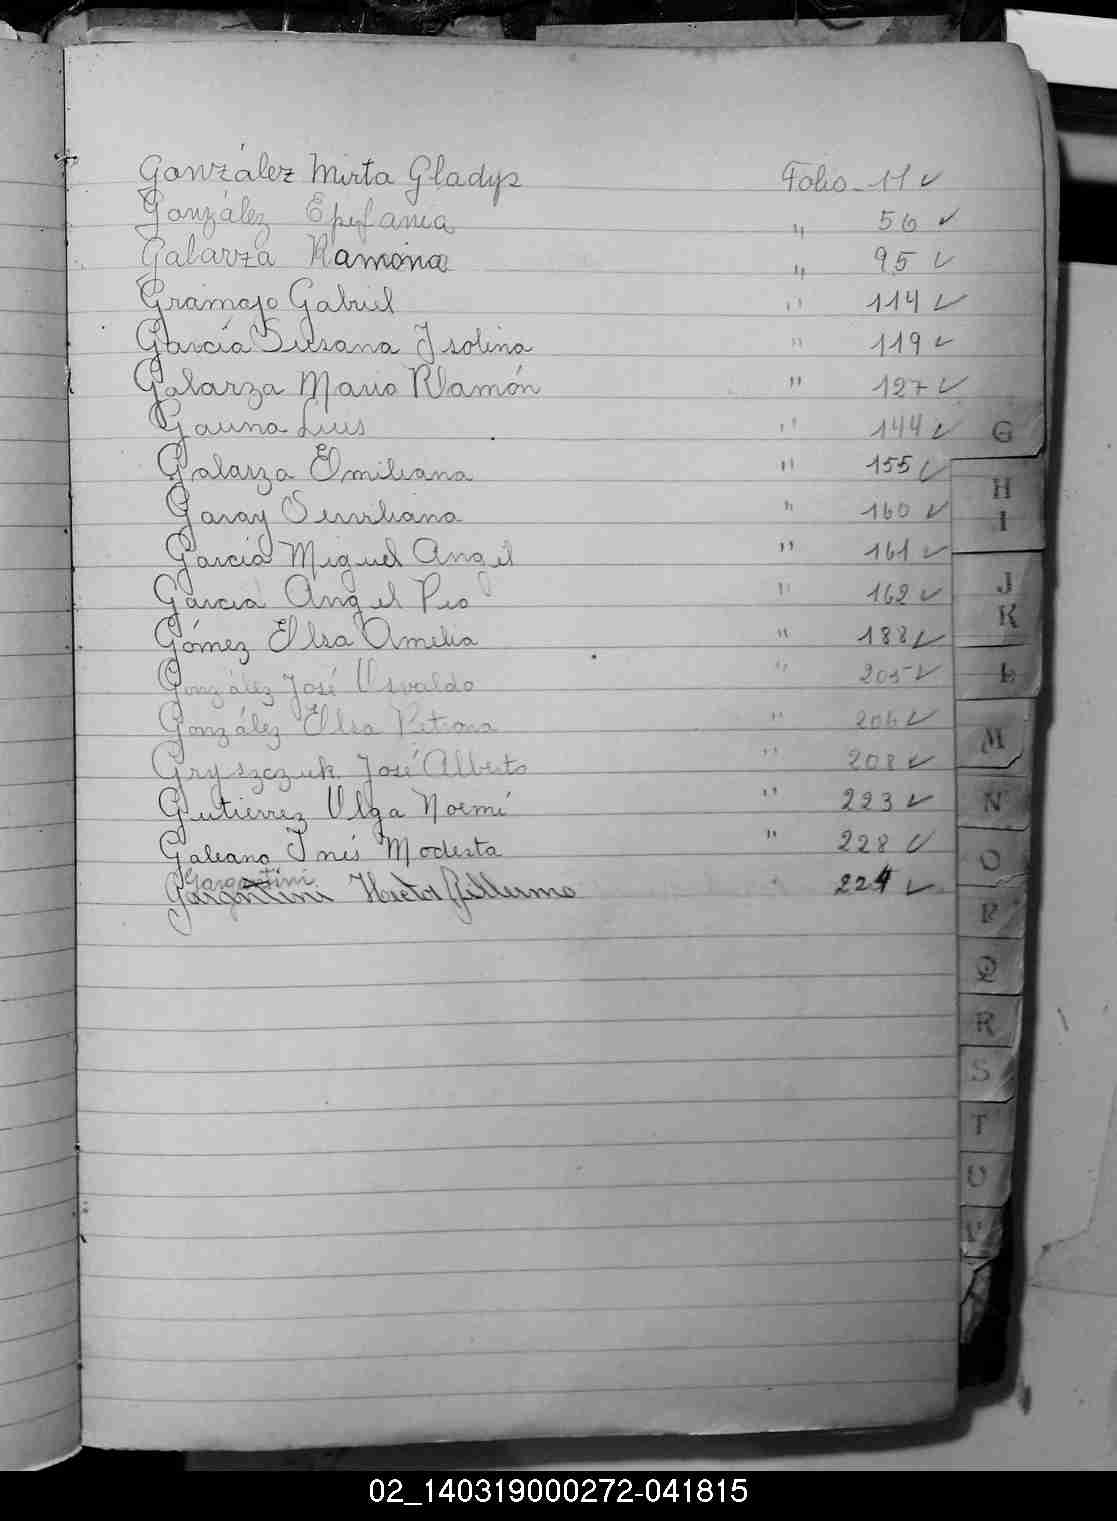 González Mirta Gladys Folio - 11 ✓
González Epifania " 56 ✓
Galarza Ramona " 95 ✓
Gramajo Gabriel " 114 ✓
García Susana Isolina " 119 ✓
Galarza Mario Ramón " 127 ✓
Gauna Luis " 144 ✓
Galarza Emiliana " 155 ✓
Garay " 160 ✓
Garcia Miguel Angel " 161 ✓
Garcia Angel Pio " 162 ✓
Gómez Elsa Amelia " 188 ✓
González José Osvaldo " 205 ✓
González Elsa Petrona " 206 ✓
Gryszczuk José Alberto " 208 ✓
Gutierrez Olga Noemí " 223 ✓
Galeano Inés Modesta " 228 ✓
Gargantini
Gargantini Hector Gillermo 224 ✓
G
H
I
J
K
L
M
N
O
P
Q
R
S
T
U
V
02_140319000272-041815